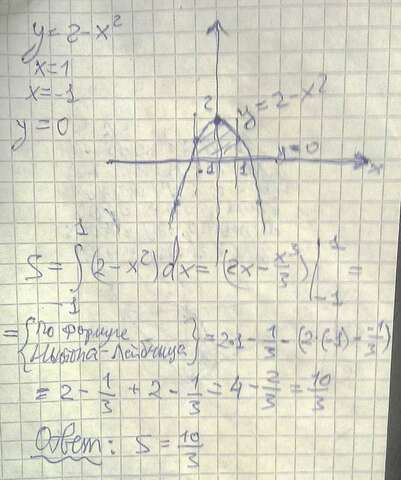 y = 2 - x²
x = 1
x = -1
y = 0
2
y = 2 - x²
y = 0
-1 1 x
S = ∫₋₁¹ (2 - x²) dx = (2x - x³/3) |₋₁¹ =
= { по формуле Ньютона-Лейбница } = 2·1 - 1/3 - (2·(-1) - -1/3)
= 2 - 1/3 + 2 - 1/3 = 4 - 2/3 = 10/3
Ответ: S = 10/3